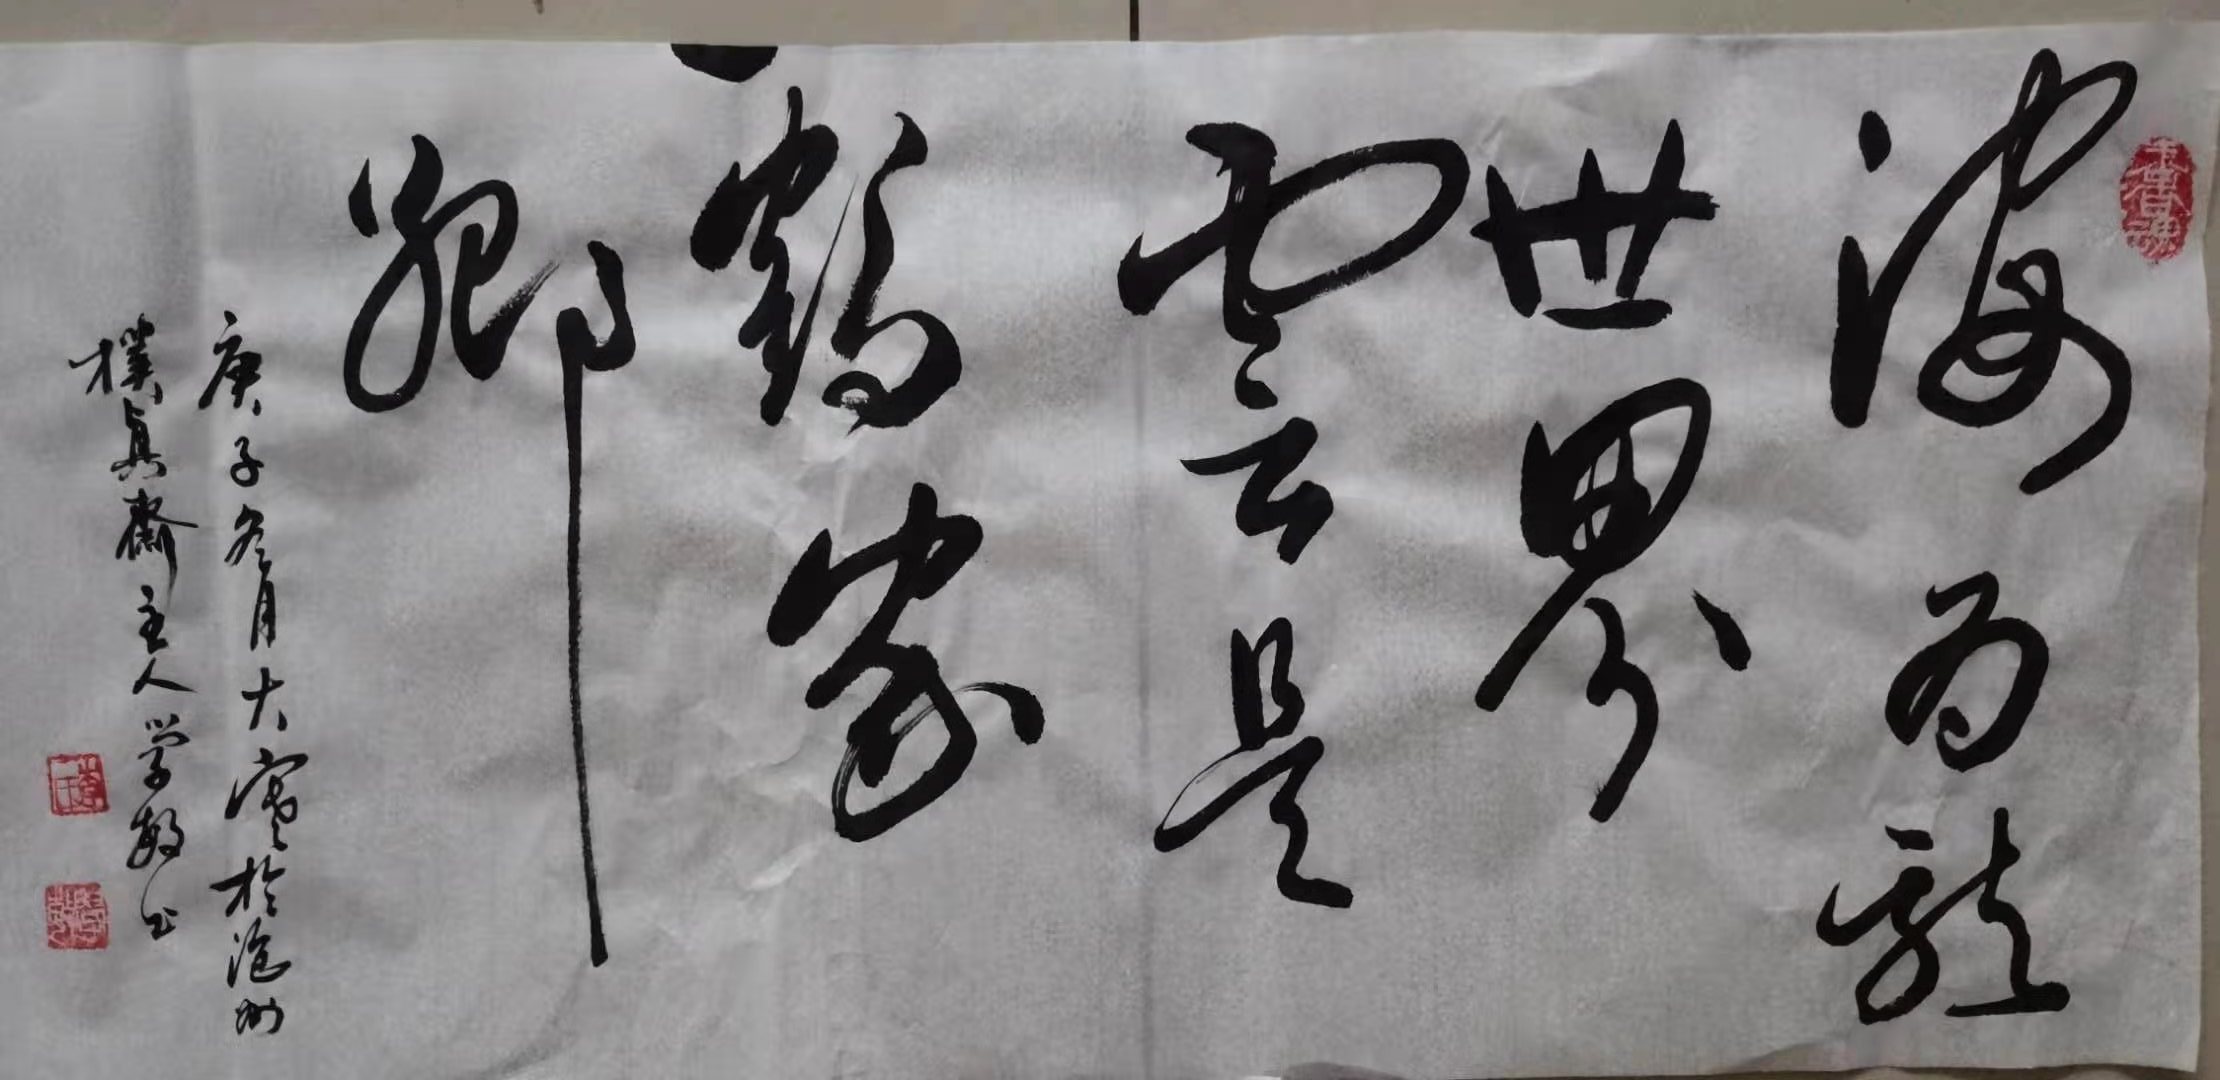 海为龍
世界
雲是
鶴家
鄉
庚子冬月大寒於滄州
樸真齋主人学敏书